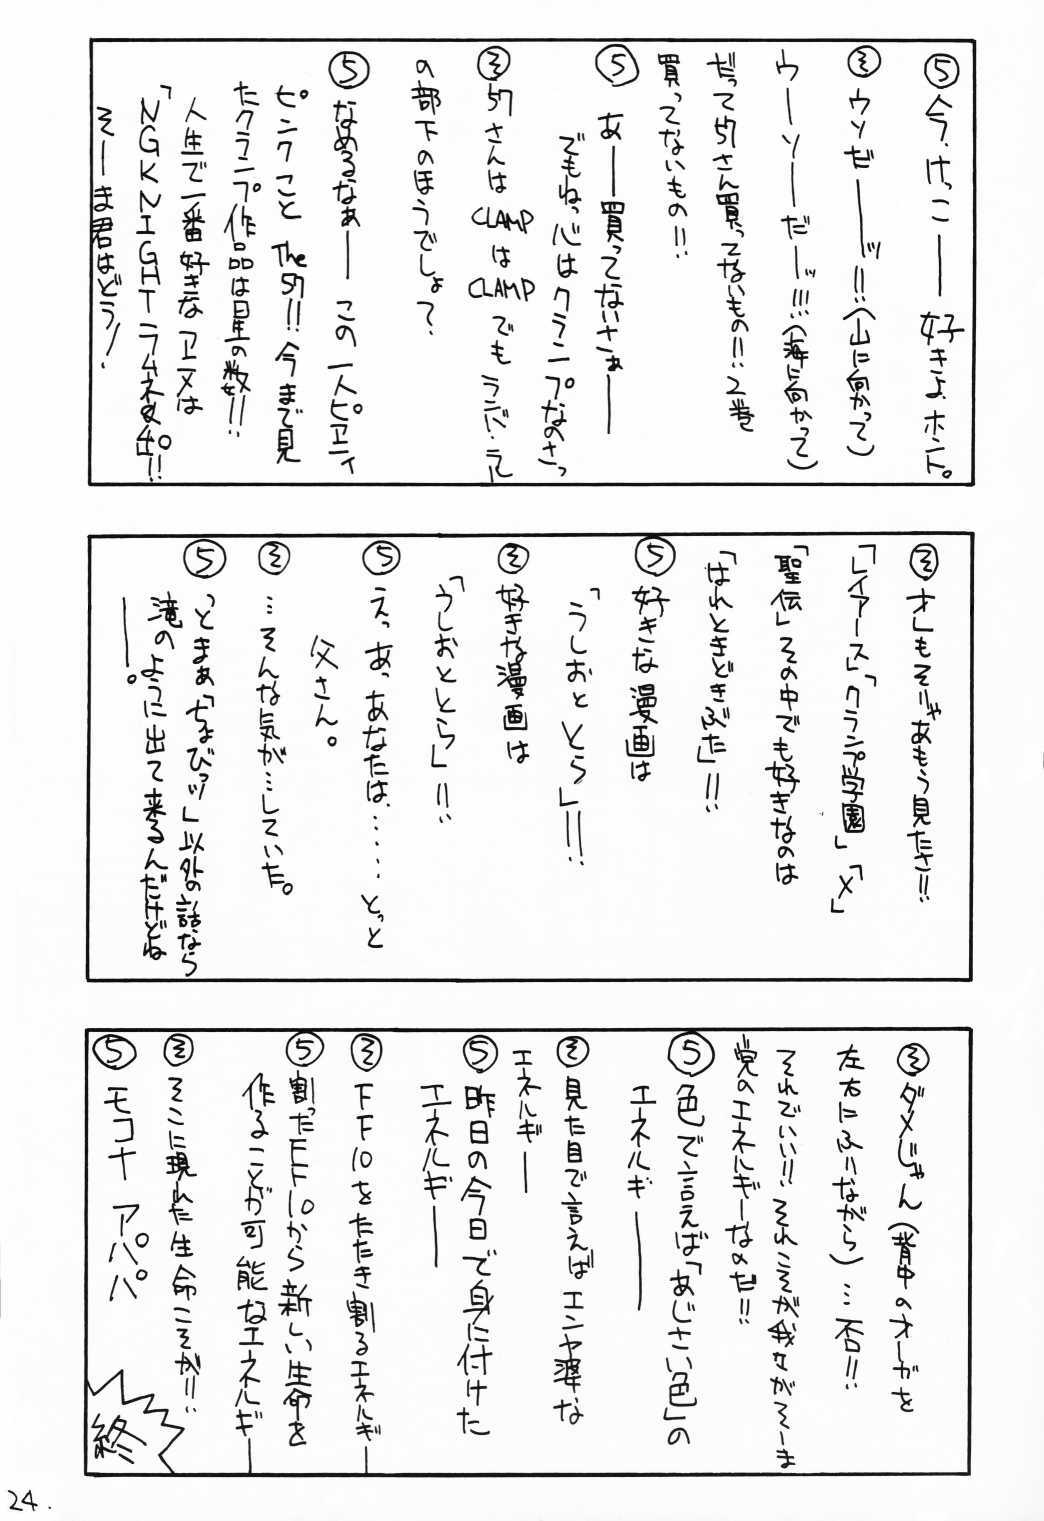 ⑤今、けっこーー好きよ、ホント。
そ ウソだーーッ!!(山に向かって)
ウーソーーだーッ!!!(海に向かって)
だって57さん買ってないもの!!2巻
買ってないもの!!
⑤あーー買ってないさぁーー
でもねっ心はクランプなのさっ
そ 57さんはCLAMPはCLAMPでもランバ・ラル
の部下のほうでしょ?
⑤なめるなぁーーこの一人ピエニィ
ピンクこと The 57!!今まで見
たクランプ作品は星の数!!
人生で一番好きなアニメは
「NGKNIGHTラムネ&40!!
そーま君はどう!
そ オレもそりゃあもう見たさ!!
「レイアース」「クランプ学園」「X」
「聖伝」その中でも好きなのは
「はれときどきぶた」!!
⑤好きな漫画は
「うしおととら」!!!
そ 好きな漫画は
「うしおととら」!!
⑤えっあっあなたは……とっと
父さん。
そ …そんな気が…していた。
⑤っとまぁ「ちょびッツ」以外の話なら
滝のように出て来るんだけどね
ーー。
そ ダメじゃん(背中のオーガを
左右にふりながら)…否!!
それでいい!!それこそが我々がそーま
党のエネルギーなのだ!!
⑤色で言えば「あじさい色」の
エネルギーーー
そ 見た目で言えばエンヤ婆な
エネルギー
⑤昨日の今日で身に付けた
エネルギーー
そ FF10をたたき割るエネルギー
⑤割ったFF10から新しい生命を
作ることが可能なエネルギー
そ そこに現れた生命こそが!!
⑤モコナ アパパ
終
24.